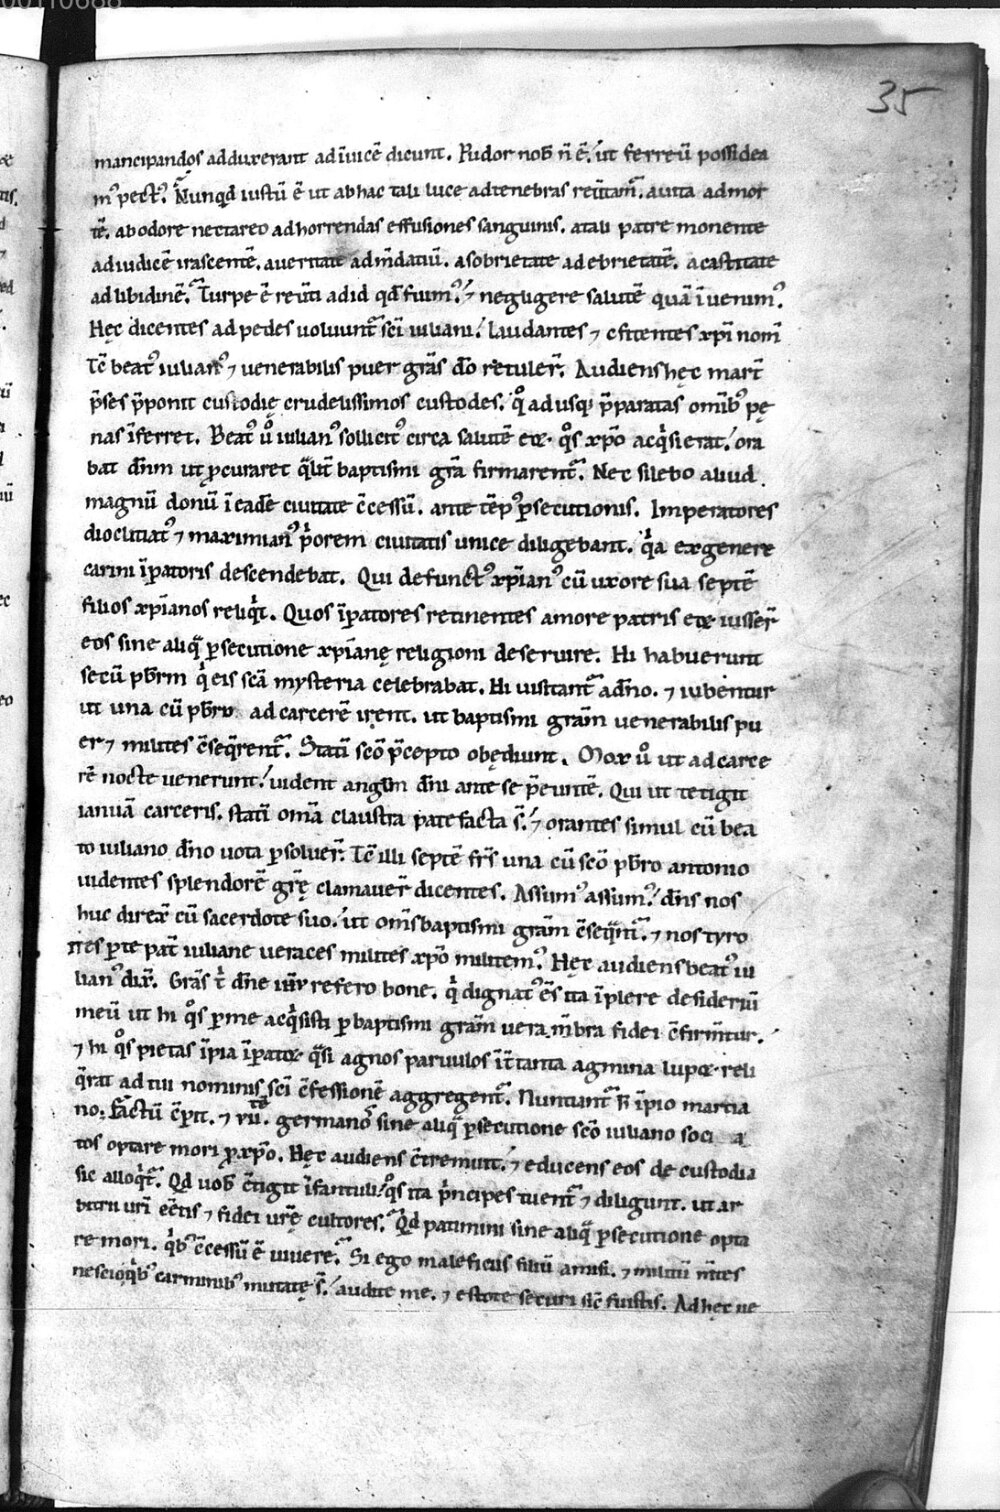 35
mancipandos adduxerant adīuicē dicunt. Pudor nob̄ n̄ ē, ut ferreū possidea
m᾽ pect᾽. Nunqd̄ iustū ē ut abhac tali luce adtenebras reu̅tam᷑. auita admor
tē. abodore nectareo adhorrendas effusiones sanguinis. atali patre monente
adiudicē irascentē. aueritate adm̄datiū. asobrietate adebrietatē. acastitate
adlibidinē. Turpe ē reu̅ti adid qd̄ fuim᾽. ⁊ neglegere salutē quā īuenim᾽.
Hęc dicentes adpedes uoluunt᷑ sc̄i iuliani. Laudantes ⁊ c̄fitentes xp̄i nom̄
Tc̄ beat᾽ iulian᾽ ⁊ uenerabilis puer grās dō retuler̄. Audiens hęc marc̄
p̄ses p̄ponit custodię crudelissimos custodes. qͦ adusq; p̄paratas omib᾽ pę
nas īferret. Beat᾽ ů iulian᾽ sollicit᾽ circa salutē eoꝝ qͦs xp̄o acqͥsierat. ora
bat dn̄m ut ꝓcuraret qͣlit̄ baptismi gr̄a firmarent᷑. Nec silebo aliud
magnū donū īeadē ciuitate c̄cessū. ante tēp᾽ ꝑsecutionis. Imperatores
dioclitian᾽ ⁊ maximian᾽ pͥorem ciuitatis unice diligebant. qͥa exgenere
carini īpatoris descendebat. Qui defunct᾽ xp̄ian᾽ cū uxore sua septē
filios xp̄ianos reliqͥt. Quos īpatores retinentes amore patris eoꝝ iusser̄
eos sine aliqͣ ꝑsecutione xp̄ianę religioni deseruire. Hi habuerunt
secū pb̄rm qͥ eis sc̄a mysteria celebrabat. Hi uisitant᷑ adn̄o. ⁊ iubentur
ut una cū pb̄ro adcarcerē irent. ut baptismi gr̄am uenerabilis pu
er ⁊ milites c̄seqͥrent᷑. Statī sc̄o p̄cepto obędiunt. Mox ů ut adcarce
rē nocte uenerunt. uident angl̄m dn̄i ante se p̄euntē. Qui ut tetigit
ianuā carceris. statī om̄a claustra patefacta s̄. ⁊ orantes simul cū bea
to iuliano dn̄o uota ꝑsoluer̄. Tc̄ illi septē fr̄s una cū sc̄o pb̄ro antonio
uidentes splendorē gr̄ę clamauer̄ dicentes. Assum᾽ assum᾽. dn̄s nos
huc direx̄ cū sacerdote suo. ut om̄s baptismi gr̄am c̄seqͣm᷑. ⁊ nos tyro
nes ꝑte pat̄ iuliane ueraces milites xp̄o militem᾽. Hęc audiens beat᾽ iu
lian᾽ dix̄. Grās tͥ dn̄e ih̄u refero bone. qͥ dignat᾽ es ita īplere desideriū
meū ut hi qͦs ꝑme acqͥsisti ꝑbaptismi gr̄am uera m̄bra fidei c̄firm̄tur.
⁊ hi qͦs pietas īpia īpatoꝝ qͣsi agnos paruulos īt̄ tanta agmina lupoꝝ reli
qͥrat ad tui nominis sc̄i c̄fessionē aggregent᷑. Nuntiant᷑ h̄ īpio marcia
no. factū c̄ꝑit. ⁊ vii.tē germanos sine aliqͣ ꝑsecutione sc̄o iuliano soci a
tos optare mori ꝓxp̄o. Hęc audiens c̄tremuit. ⁊ educens eos de custodia
sic alloqͥt᷑. Qd̄ uob̄ c̄tigit īfantuli. qͦs ita pͥncipes tuent᷑ ⁊ diligunt. ut ar
bitrii ur̄i eēt̄is ⁊ fidei ur̄ę cultores. Qd̄ patimini sine aliqͣ ꝑsecutione opta
re mori. qͥb᾽ c̄cessū ē uiuere. Si ego maleficus filiū amisi. ⁊ militū m̄tes
nescio qͥb᾽ carminib᾽ mutatę s̄. audite me. ⁊ estote securi sic̄ fuistis. Ad hęc ue